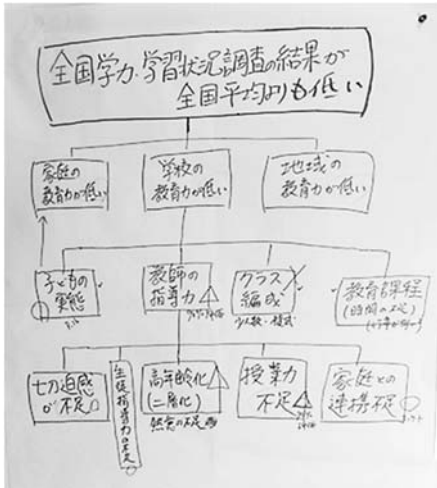 全国学力・学習状況調査の結果が
全国平均よりも低い
家庭の
教育力が低い
学校の
教育力が低い
地域の
教育力が低い
子どもの
実態
教師の
指導力
クラス
編成
少人数・複式
教育課程
(時間の不足)
切迫感
が不足
生徒指導力の不足
高年齢化
(二層化)
熱意の不足
授業力
不足
家庭との
連携不足